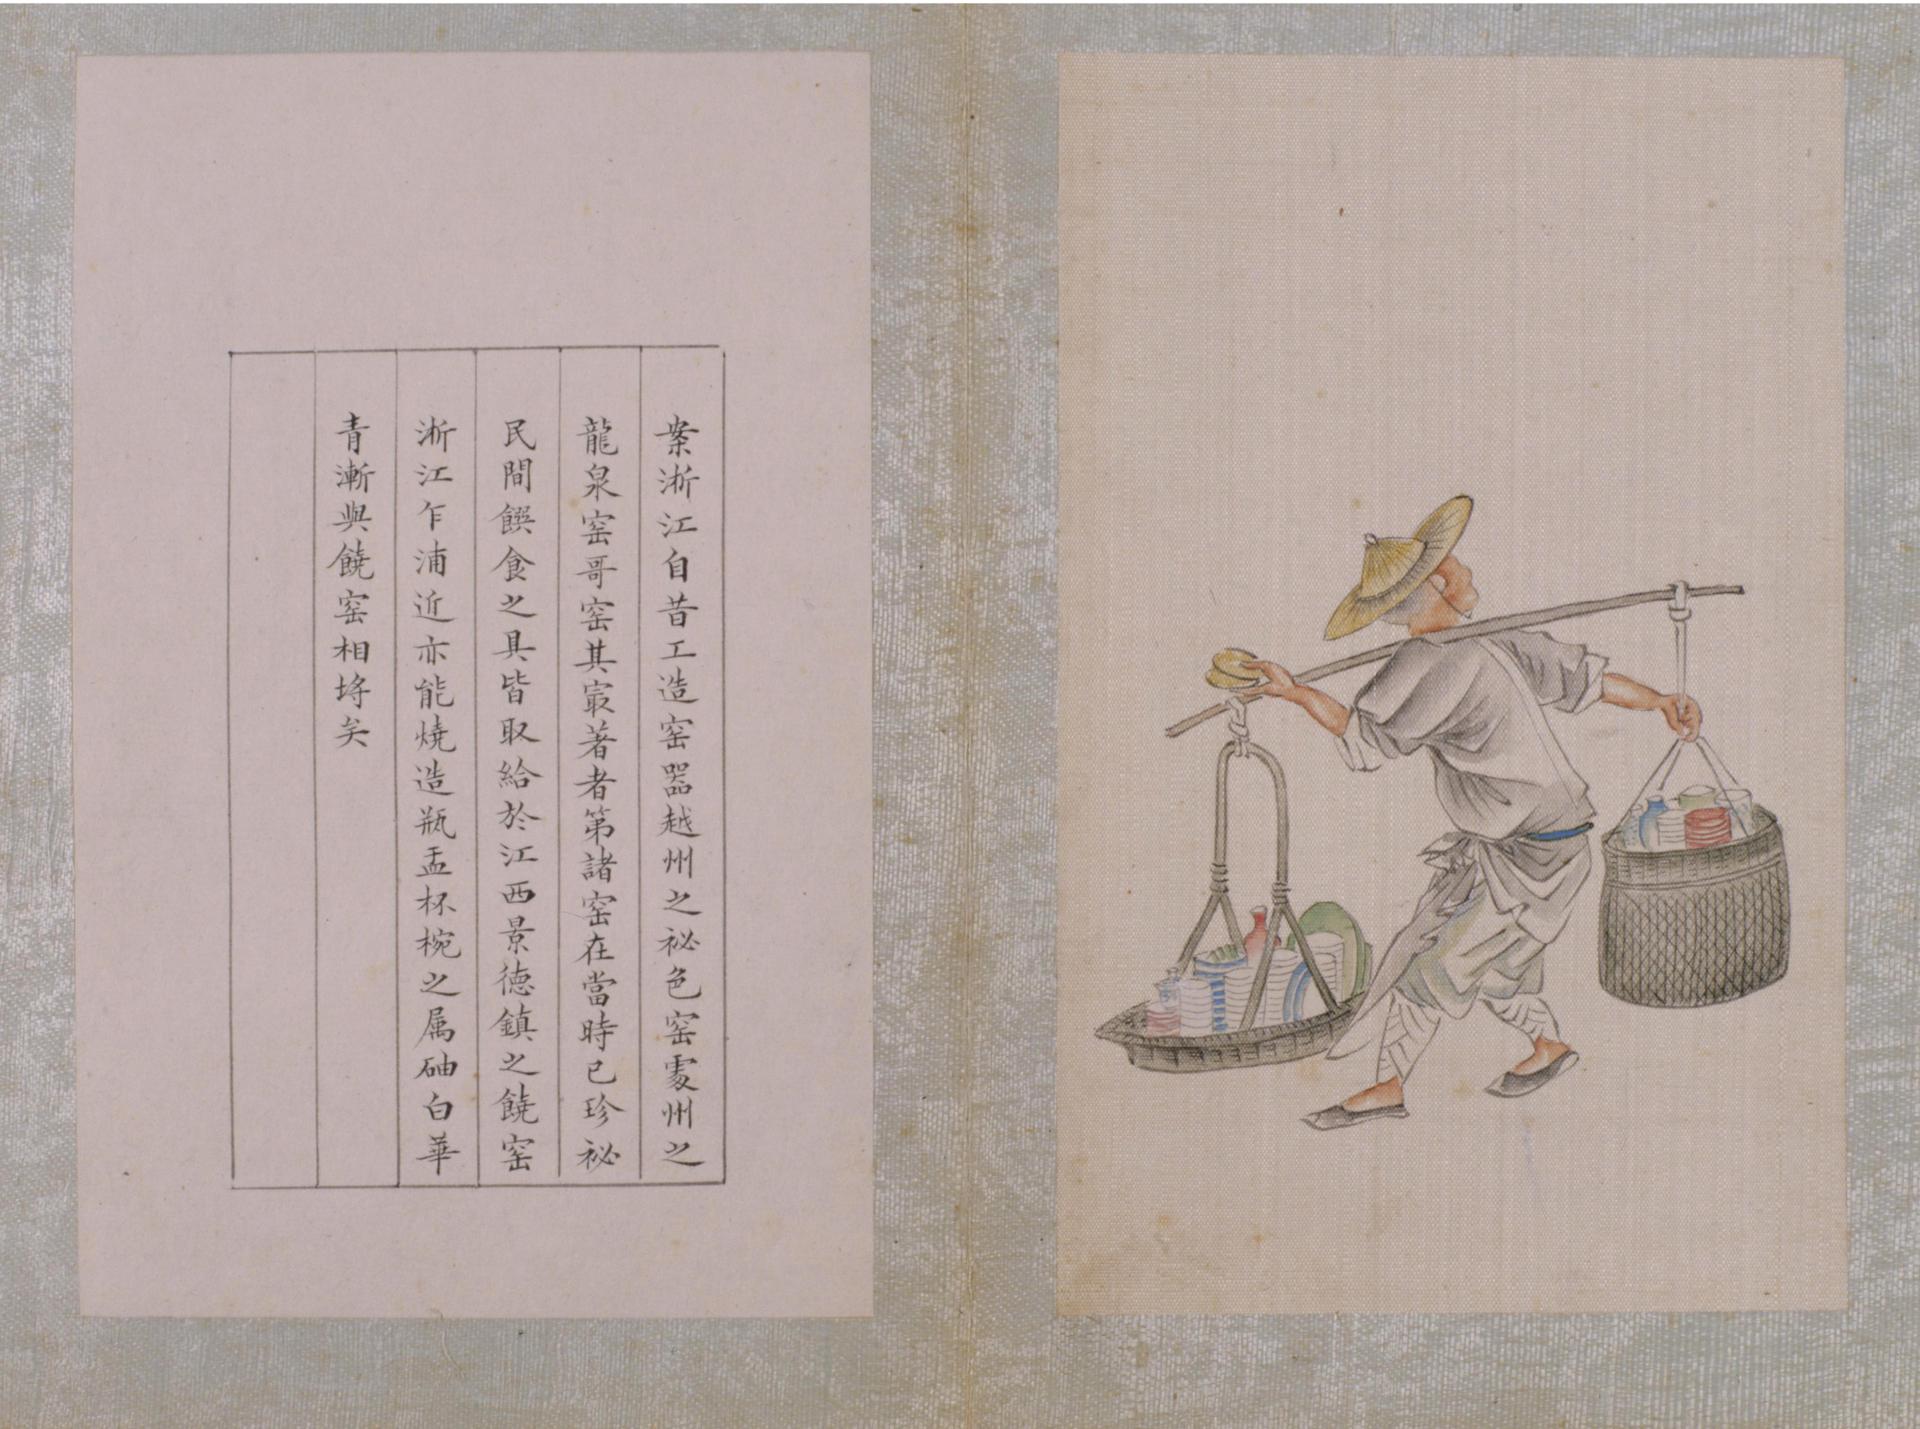 案浙江自昔工造窑器越州之祕色窑䖏州之
龍泉窑哥窑其㝡著者第諸窑在當時已珍祕
民間饌食之具皆取給於江西景德鎮之饒窑
浙江乍浦近亦能燒造瓶盂杯椀之属砶白華
青漸與饒窑相埒矣